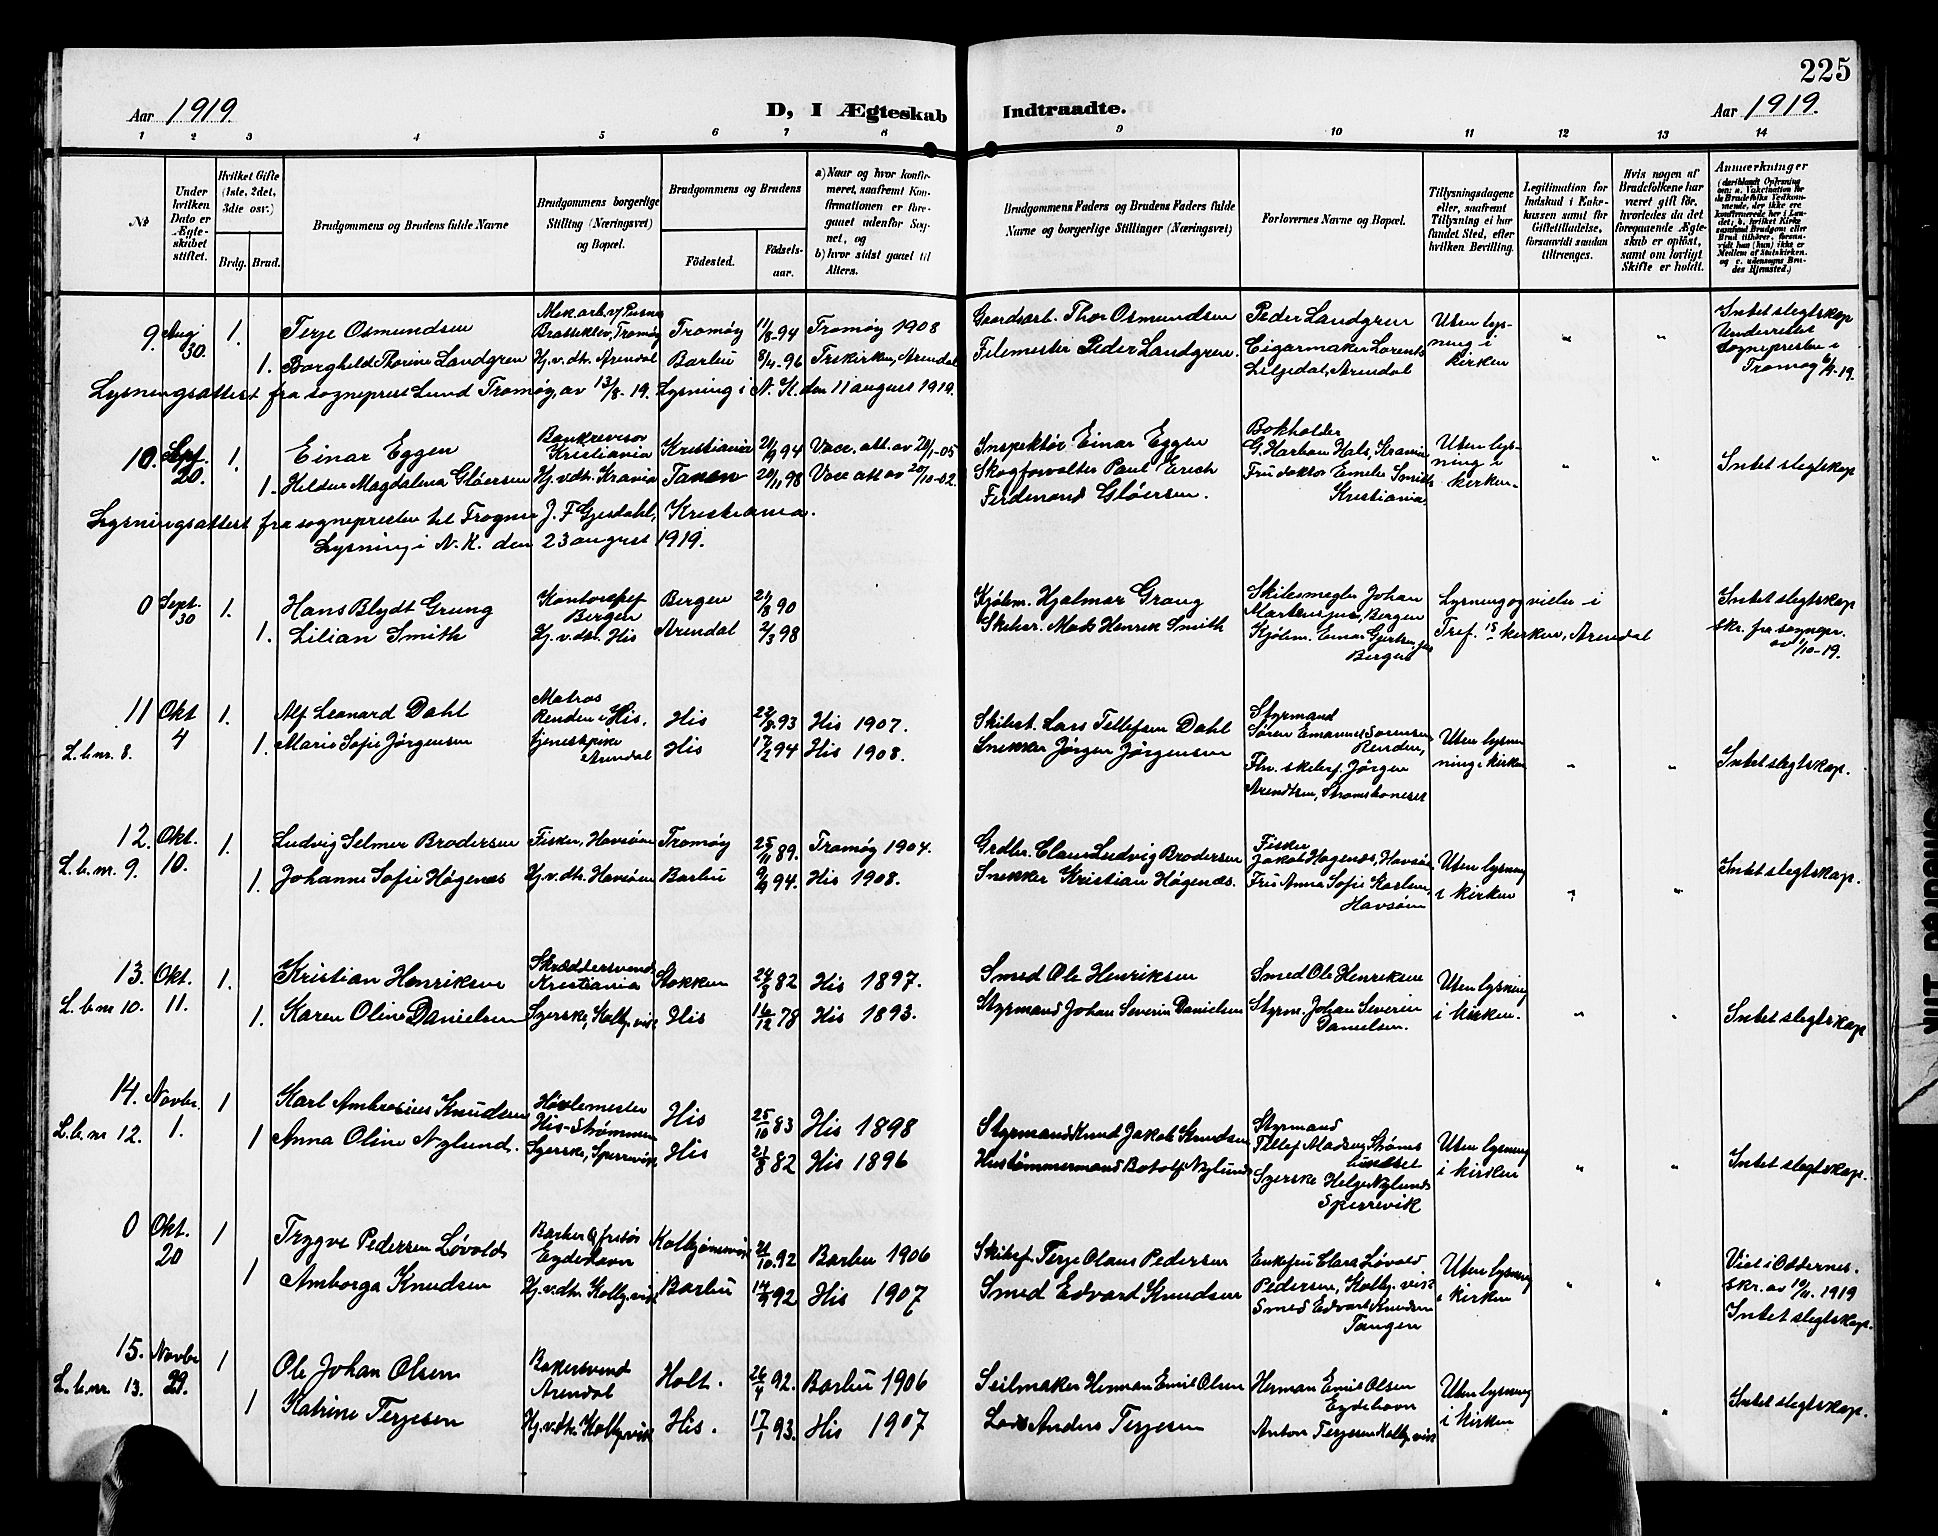 225
Aar 1919.
D, I Ægteskab Indtraadte.
Aar 1919.
1 2 3 4 5 6 7 8 9 10 11 12 13 14
№
Under hvilken Dato er Ægteskabet stiftet.
Hvilket Gifte (1ste, 2det, 3die osv.)
Brdg. Brud.
Brudgommens og Brudens fulde Navne
Brudgommens borgerlige Stilling (Næringsvei) og Bopæl.
Brudgommens og Brudens
Fødested.
Fødselsaar.
a) Naar og hvor konfirmeret, saafremt Konfirmationen er foregaaet udenfor Sognet, og
b) hvor sidst gaaet til Alters.
Brudgommens Faders og Brudens Faders fulde Navne og borgerlige Stillinger (Næringsvei)
Forlovernes Navne og Bopæl.
Tillysningsdagene eller, saafremt Tillysning ei har fundet Sted, efter hvilken Bevilling.
Legitimation for Indskud i Enkekassen samt for Giftetilladelse, forsaavidt saadan tiltrænges.
Hvis nogen af Brudefolkene har været gift før, hvorledes da det foregaaende Ægteskab er opløst, samt om lovligt Skifte er holdt.
Anmærkninger
9. Aug 30. 1. Terje Osmundsen
Bratteklev, Tromøy Tromøy 11/8 94 Tromøy 1908
Gaardsarb. Thor Osmundsen
Peder Landgren
Uten lysning i kirken
Intet slegtskap
Underrettet sognepresten i Tromøy 6/9-19.
1. Borghild Thorine Landgren Hj.v.dtr. Arendal Barbu 8/4 96 Trskirken, Arendal
Filemester Peder Landgren.
Cigarmaker Lorents Liljedal, Arendal
Lysningsattest fra sogneprest Lund Tromøy, av 13/8-19. Lysning i N. K. den 11 august 1919.
10. Sept. 20. 1. Einar Eggen
Bankrevisor Kristiania Kristiania 21/9 94 Vacc. att. av 28/1-05
Inspektør Einar Eggen
Bokholder
Uten lysning i kirken
Intet slegtskap
1. Hildur Magdalena Gløersen Hj.v.dtr. Kr.ania Tanen 20/11 98 Vacc att av 20/10-02.
Skogforvalter Paul Erich Ferdinand Gløersen.
Fru doktor Emelie Smith Kristiania
Lysningsattest fra sognepresten til Frogner J. F. Gjesdahl, Kristiania.
Lysning i N. K. den 23 august 1919.
0 Sept. 30 1. Hans Blydt Grung
Kontorchef Bergen Bergen 21/8 90
Kjøbm. Hjalmar Grung
Skibsmegler Johan Martens jun, Bergen
Lysning og vielse i Tref.s kirken, Arendal
Intet slegtskap
skr. fra sognepr. av 1/10-19.
1. Lilian Smith Hj.v.dtr. His Arendal 2/3 98
Skibsr. Mads Henrik Smith
Kjøbm. Einar Gjertsen jun Bergen
11 Okt 4 1. Alf Leonard Dahl
Matros Renden i His. His 22/8 93 His 1907.
Skibst. Lars Tellefsen Dahl
Styrmand Søren Emanuel Sørensen Renden,
Uten lysning i kirken
Intet slegtskap.
L.b.nr. 8. 1. Marie Sofie Jørgensen tjenestpike Arendal His 17/2 94 His 1908.
Snekker Jørgen Jørgensen
Fhv. skibsf. Jørgen Arendtsen, Strømsbuneset
12. Okt. 10. 1. Ludvig Selmer Brodersen
Fisker, Havsøen Tromøy 25/11 89. Tromøy 1904.
Grdbr. Claus Ludvig Brodersen
Fisker Jakob Høgenæs, Havsøen
Uten lysning i kirken
Intet slegtskap.
L.b.nr. 9. 1. Johanne Sofie Høgenæs Hj.v.dtr. Havsøen Barbu 9/9 94. His 1908.
Snekker Kristian Høgenæs.
Fru Anna Sofie Karlsen, Havsøen
13. Okt. 11. 1. Kristian Henriksen
Skræddersvend Kristiania Stokken 24/8 82 His 1897.
Smed Ole Henriksen
Smed Ole Henriksen
Uten lysning i kirken.
Intet slegtskap
L.b.nr 10. 1. Karen Oline Danielsen Syerske, Kolbj.vik His 16/12 78 His 1893.
Styrmand Johan Severin Danielsen
Styrm. Johan Severin Danielsen.
14. Novbr. 1. 1 Karl Ambrosius Knudsen
Høvlemester His-Strømmen His 25/10 83 His 1898
Styrmand Knud Jakob Knudsen
Styrmand Tellef Madsen, Strømsbuneset
Uten lysning i kirken
Intet slegtskap.
L.b.nr 12. 1 Anna Oline Nylund. Syerske, Sperrevik His 21/8 82 His 1896
Hustømmermand Botolf Nylund
Syerske Helga Nylund Sperrevik
0 Okt. 20 1 Trygve Pedersen Løvold
Barber & frisør Eydehavn Kolbjørnsvik 21/10. 92 Barbu 1906
Skibsf. Terje Olaus Pedersen
Enkefru Clara Løvold Pedersen, Kolbj.vik
Uten lysning i kirken
Viet i Oddernes. skr. av 10/11. 1919
Intet slegtskap.
1 Amborga Knudsen Hj.v.dtr. Kolbj.vik Barbu 14/9 92 His 1907
Smed Edvard Knudsen
Smed Edvart Knudsen Tangen
15. Novbr 29. 1 Ole Johan Olsen
Bakersvend Arendal Holt. 26/4 92. Barbu 1906
Seilmaker Herman Emil Olsen
Herman Emil Olsen Eydehavn
Uten lysning i kirken
Intet slegtskap.
L.b.nr. 13. 1 Katrine Terjesen Hj.v.dtr. Kolbj.vik His. 17/1 93. His 1907
Lods Anders Terjesen
Anton Terjesen Kolbj.vik